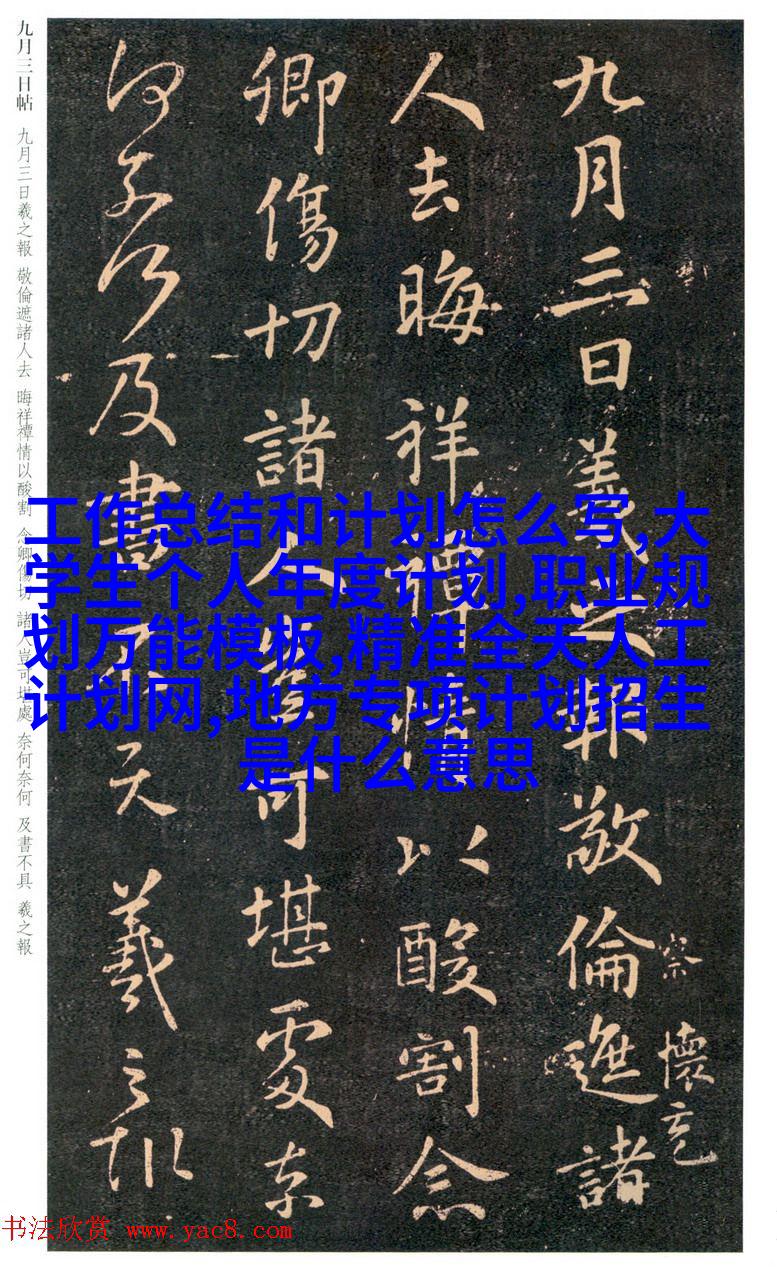 九月三日帖 九月三日羲之報 敬倫遮諸人去 晦祥禫情以酸割 念卿傷切 諸人豈可堪處 奈何奈何 及書不具 羲之報
九月三日羲之報敬倫遮諸
察 懷充
人去晦祥禫情以酸割念
卿傷切諸人豈可堪處奈
何奈何及書不具羲之報
工作总结和计划怎么写,大
学生个人年度计划,职业规
划万能模板,精准全天人工
计划网,地方专项计划招生
是什么意思
书法欣赏 www.yac8.com